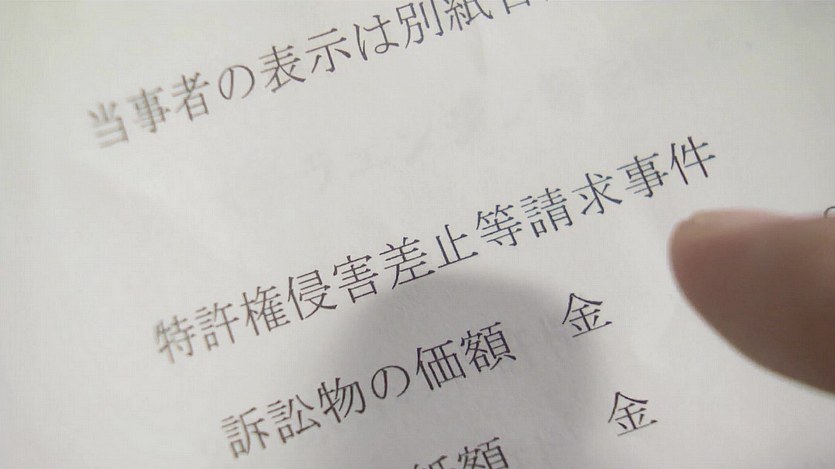 当事者の表示は別紙
特許権侵害差止等請求事件
訴訟物の価額 金
紙額 金